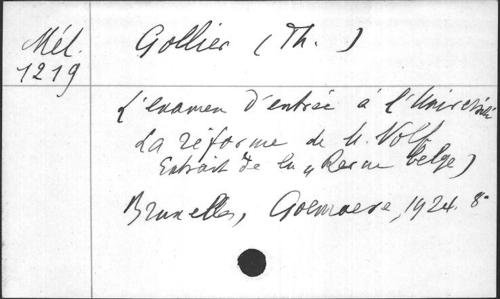 Mél.
1219
Gollier (Th.)
L'examen d'entrée à l'Université
La réforme de M. Nolf
Extrait de la "Revue belge)
Bruxelles, Goemaere, 1924. 8°